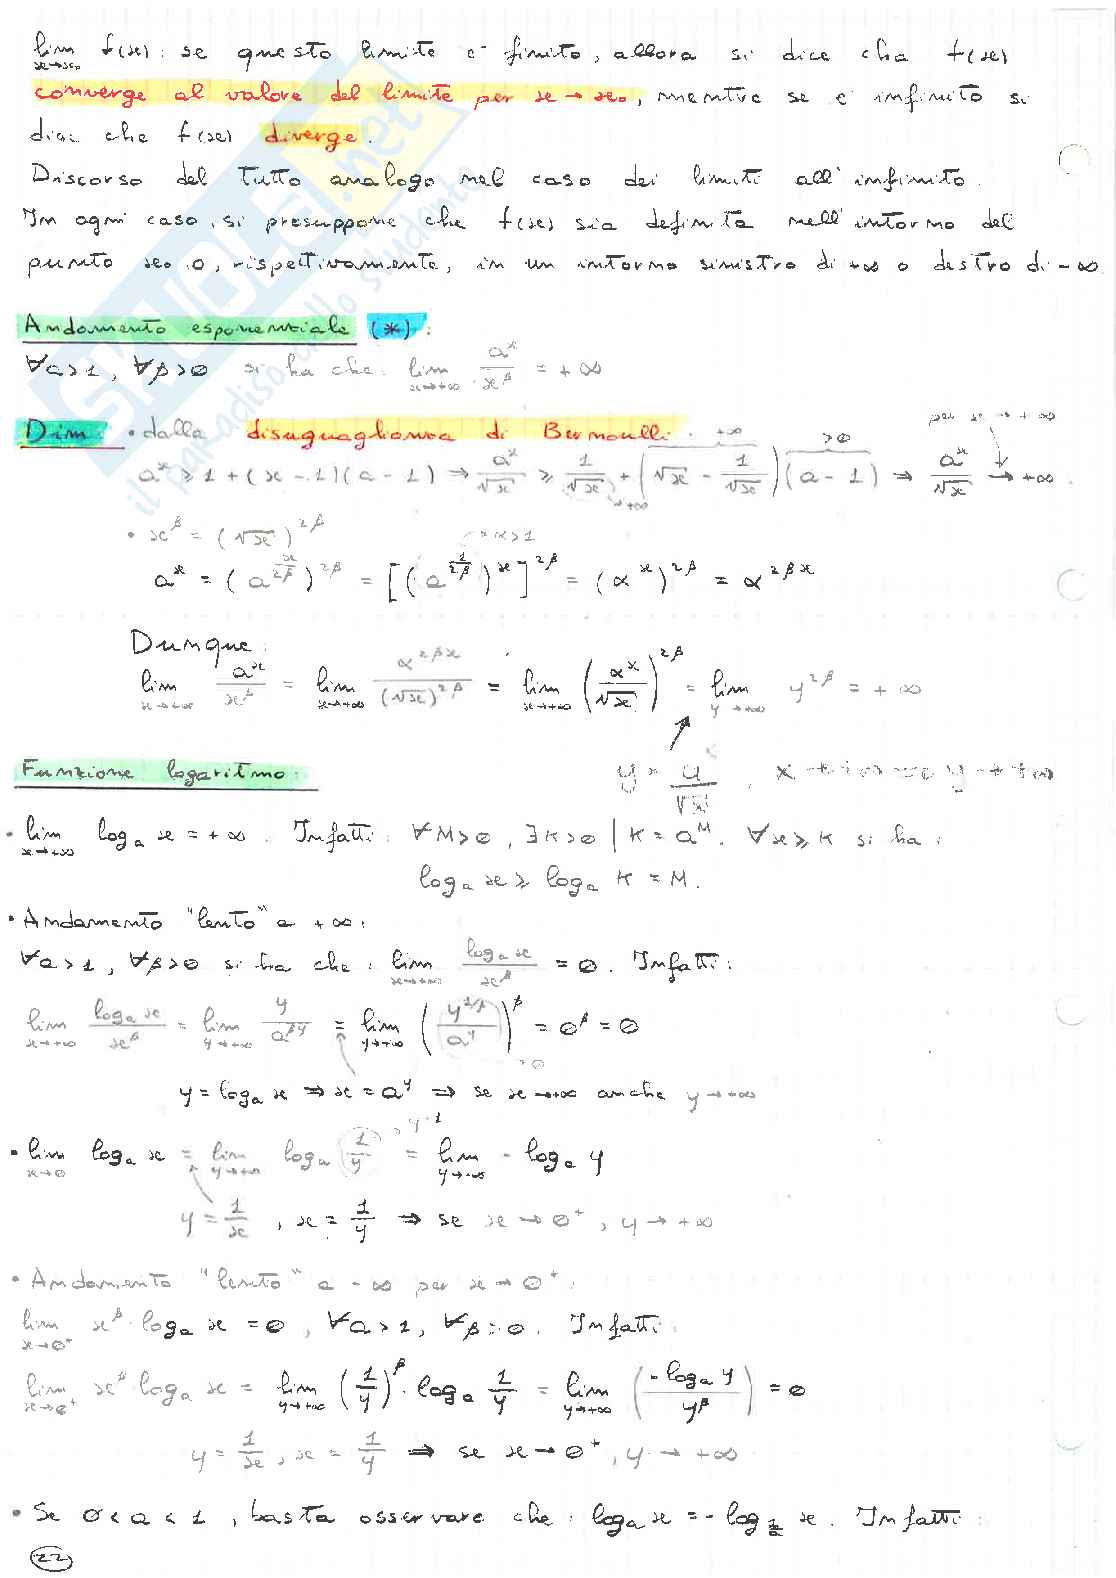 lim f(x): se questo limite è finito, allora si dice che f(x)
x→x₀
converge al valore del limite per x → x₀, mentre se è infinito si
dice che f(x) diverge.
Discorso del tutto analogo nel caso dei limiti all'infinito.
In ogni caso, si presuppone che f(x) sia definita nell'intorno del
punto x₀ o, rispettivamente, in un intorno sinistro di +∞ o destro di -∞
Andamento esponenziale (*):
∀a>1, ∀β>0 si ha che: lim x→+∞ a^x / x^β = +∞
Dim: • dalla disuguaglianza di Bernoulli.
+∞ >0 per x → +∞
a^x ≥ 1 + (x - 1)(a - 1) ⇒ a^x/√x ≥ 1/√x + (√x - 1/√x)(a - 1) ⇒ a^x/√x → +∞.
→+∞
• x^β = (√x)^2β
= α>1
a^x = (a^(x/2β))^2β = [(a^(1/2β))^x]^2β = (α^x)^2β = α^2βx
Dunque:
lim x→+∞ a^x/x^β = lim x→+∞ α^2βx/(√x)^2β = lim x→+∞ (α^x/√x)^2β = lim y→+∞ y^2β = +∞
Funzione logaritmo:
y = a^x/√x, x → +∞ ⇒ y → +∞
• lim x→+∞ logₐ x = +∞. Infatti: ∀M>0, ∃K>0 | K = a^M. ∀x ≥ K si ha:
logₐ x ≥ logₐ K = M.
• Andamento "lento" a +∞:
∀a>1, ∀β>0 si ha che: lim x→+∞ logₐ x / x^β = 0. Infatti:
lim x→+∞ logₐ x / x^β = lim y→+∞ y/a^βy = lim y→+∞ (y^(1/β)/a^y)^β = 0^β = 0
→0
y = logₐ x ⇒ x = a^y ⇒ se x→+∞ anche y→+∞
→ y^-1
• lim x→0 logₐ x = lim y→+∞ logₐ (1/y) = lim y→+∞ - logₐ y
y = 1/x, x = 1/y ⇒ se x → 0⁺, y → +∞
• Andamento "lento" a -∞ per x → 0⁺:
lim x→0⁺ x^β · logₐ x = 0, ∀a>1, ∀β>0. Infatti:
lim x→0⁺ x^β logₐ x = lim y→+∞ (1/y)^β · logₐ 1/y = lim y→+∞ (-logₐ y / y^β) = 0
y = 1/x, x = 1/y ⇒ se x → 0⁺, y → +∞
• Se 0 < a < 1, basta osservare che: logₐ x = - log_(1/a) x. Infatti:
22
SKUOLA.net
il paradiso dello studente